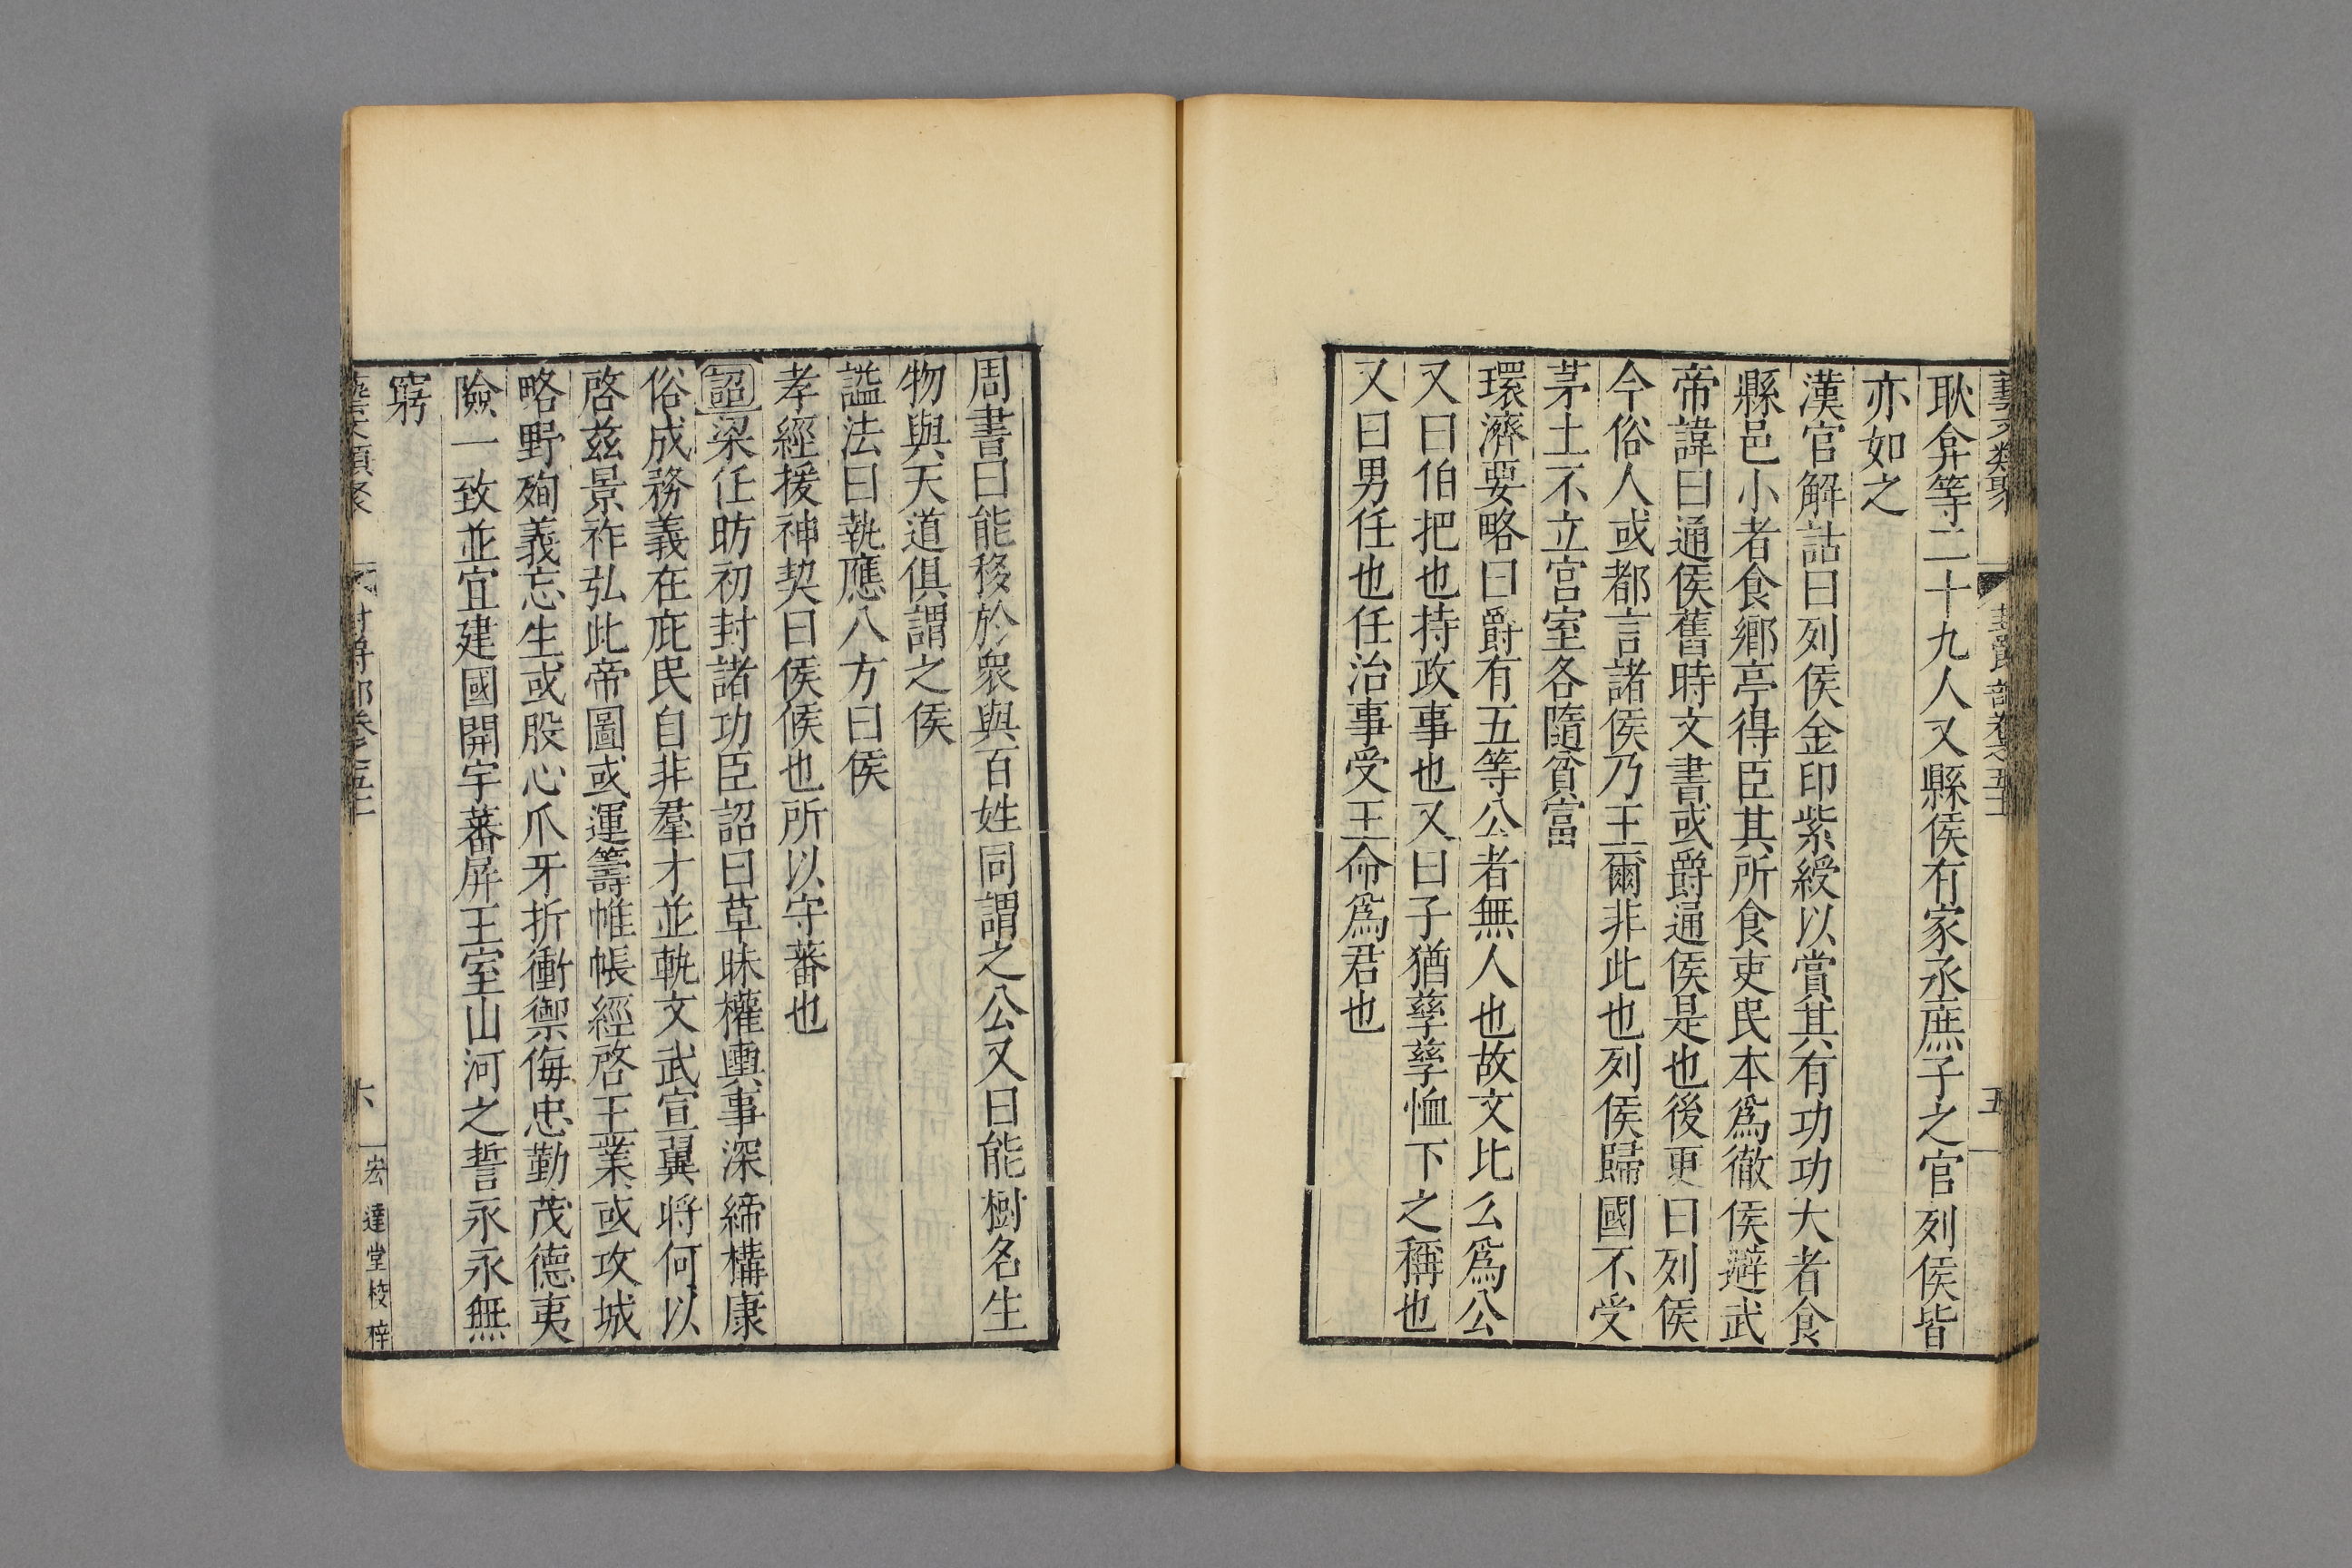 藝文類聚 封爵部卷之五十一 五
耿弇等二十九人又縣侯有家丞庶子之官列侯皆
亦如之
漢官解詁曰列侯金印紫綬以賞其有功功大者食
縣邑小者食鄉亭得臣其所食吏民本爲徹侯避武
帝諱曰通侯舊時文書或爵通侯是也後更曰列侯
今俗人或都言諸侯乃王爾非此也列侯歸國不受
茅土不立宮室各隨貧富
環濟要略曰爵有五等公者無人也故文比厶爲公
又曰伯把也持政事也又曰子猶孳孳恤下之稱也
又曰男任也任治事受王命爲君也
周書曰能移於衆與百姓同謂之公又曰能樹名生
物與天道俱謂之侯
謚法曰執應八方曰侯
孝經援神契曰侯候也所以守蕃也
詔梁任昉初封諸功臣詔曰草昧權輿事深締構康
俗成務義在庇民自非羣才並軌文武宣翼將何以
啓茲景祚弘此帝圖或運籌帷帳經啓王業或攻城
略野殉義忘生或股心爪牙折衝禦侮忠勤茂德夷
險一致並宜建國開宇蕃屏王室山河之誓永永無
窮
六 宏達堂校梓